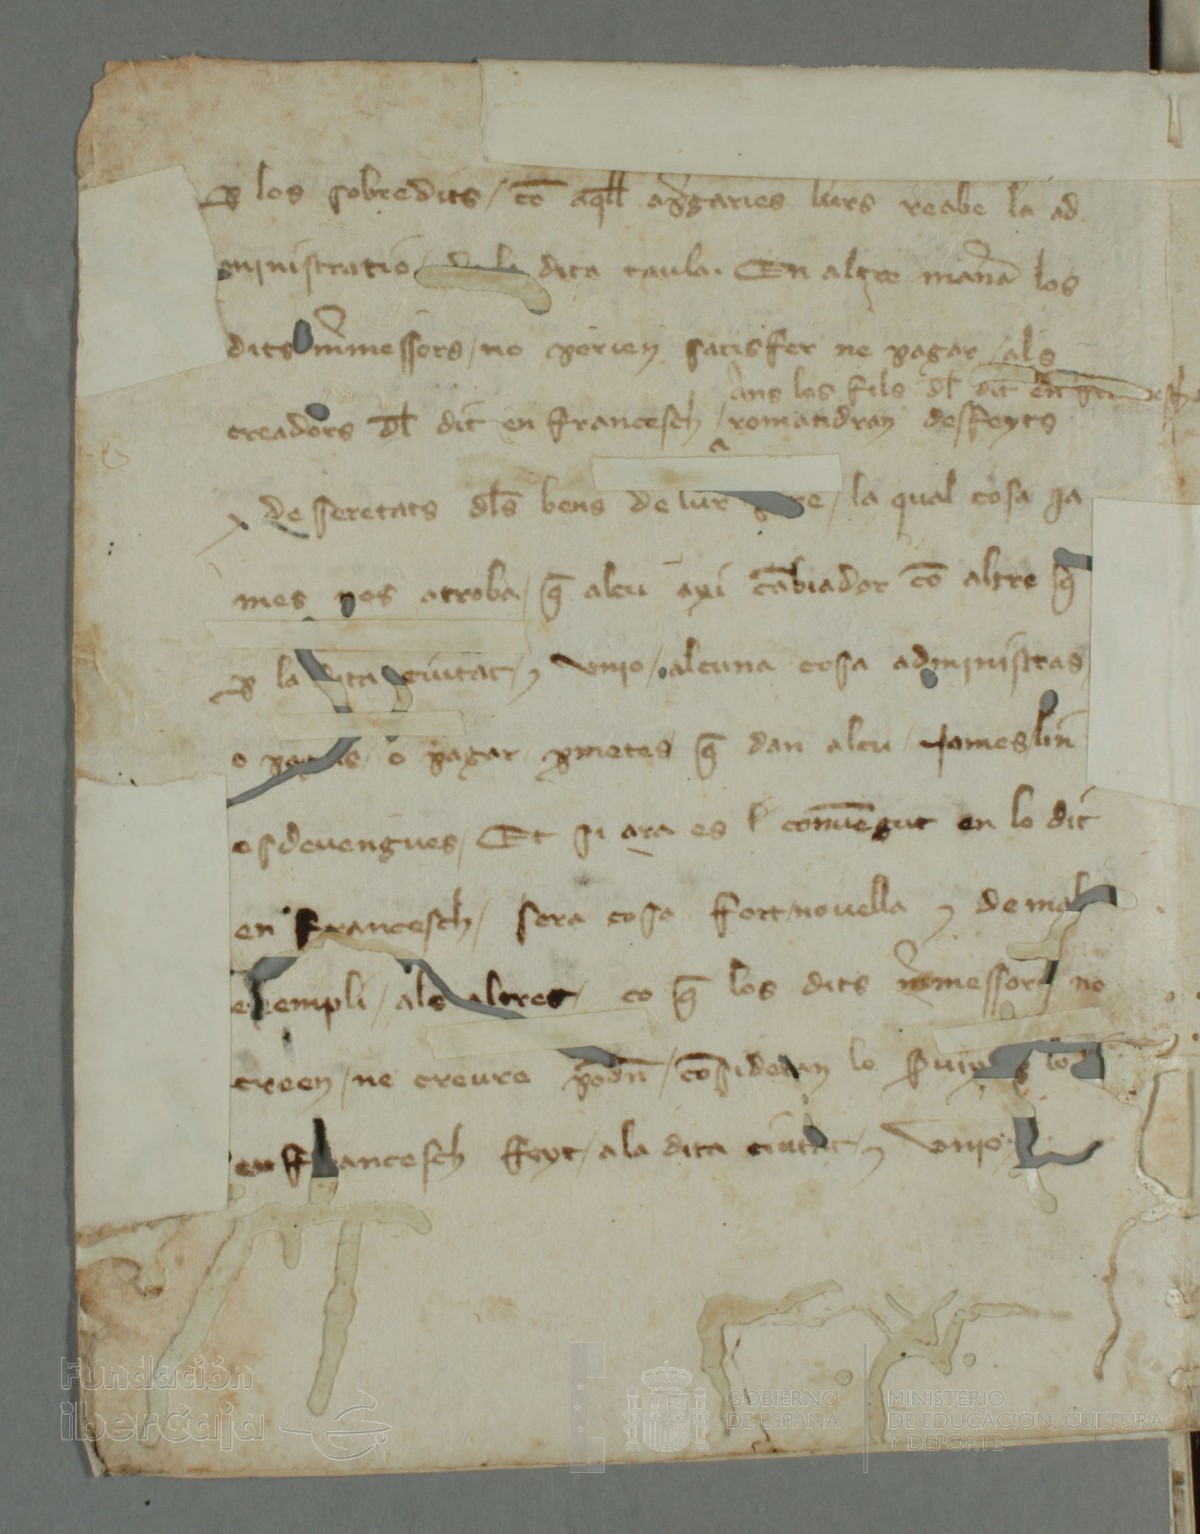 p los sobredits / cō aqll apgaries lurs reabe la ad
ministratio de la dita taula. En altre mana los
dits mmessors / no porien satisfer ne pagar / als
ans los fils dl dit en ffrancesch
creadors dl dit en ffrancesch / romandran desfeyts
y desseretats dls bens de lur / la qual cosa ja
mes nos atroba / q̄ alcu axi cābiador cō altre q̄
p la dita ciutat / y Unio / alcuna cosa administras
o pagas / o pagar pmetes / q̄ dan alcu / james lin
esdevengues / Et si ara es convēgut en lo dit
en ffrancesch / sera cosa fort novella y de mal
exempli / als altres / co q̄ los dits mmessors no
creen / ne creure podn / cōsideran lo p lo dit
en ffrancesch ffeyt / a la dita ciutat / y Unio
Fundación
iberCaja
GOBIERNO
DE ESPAÑA
MINISTERIO
DE EDUCACIÓN, CULTURA
Y DEPORTE